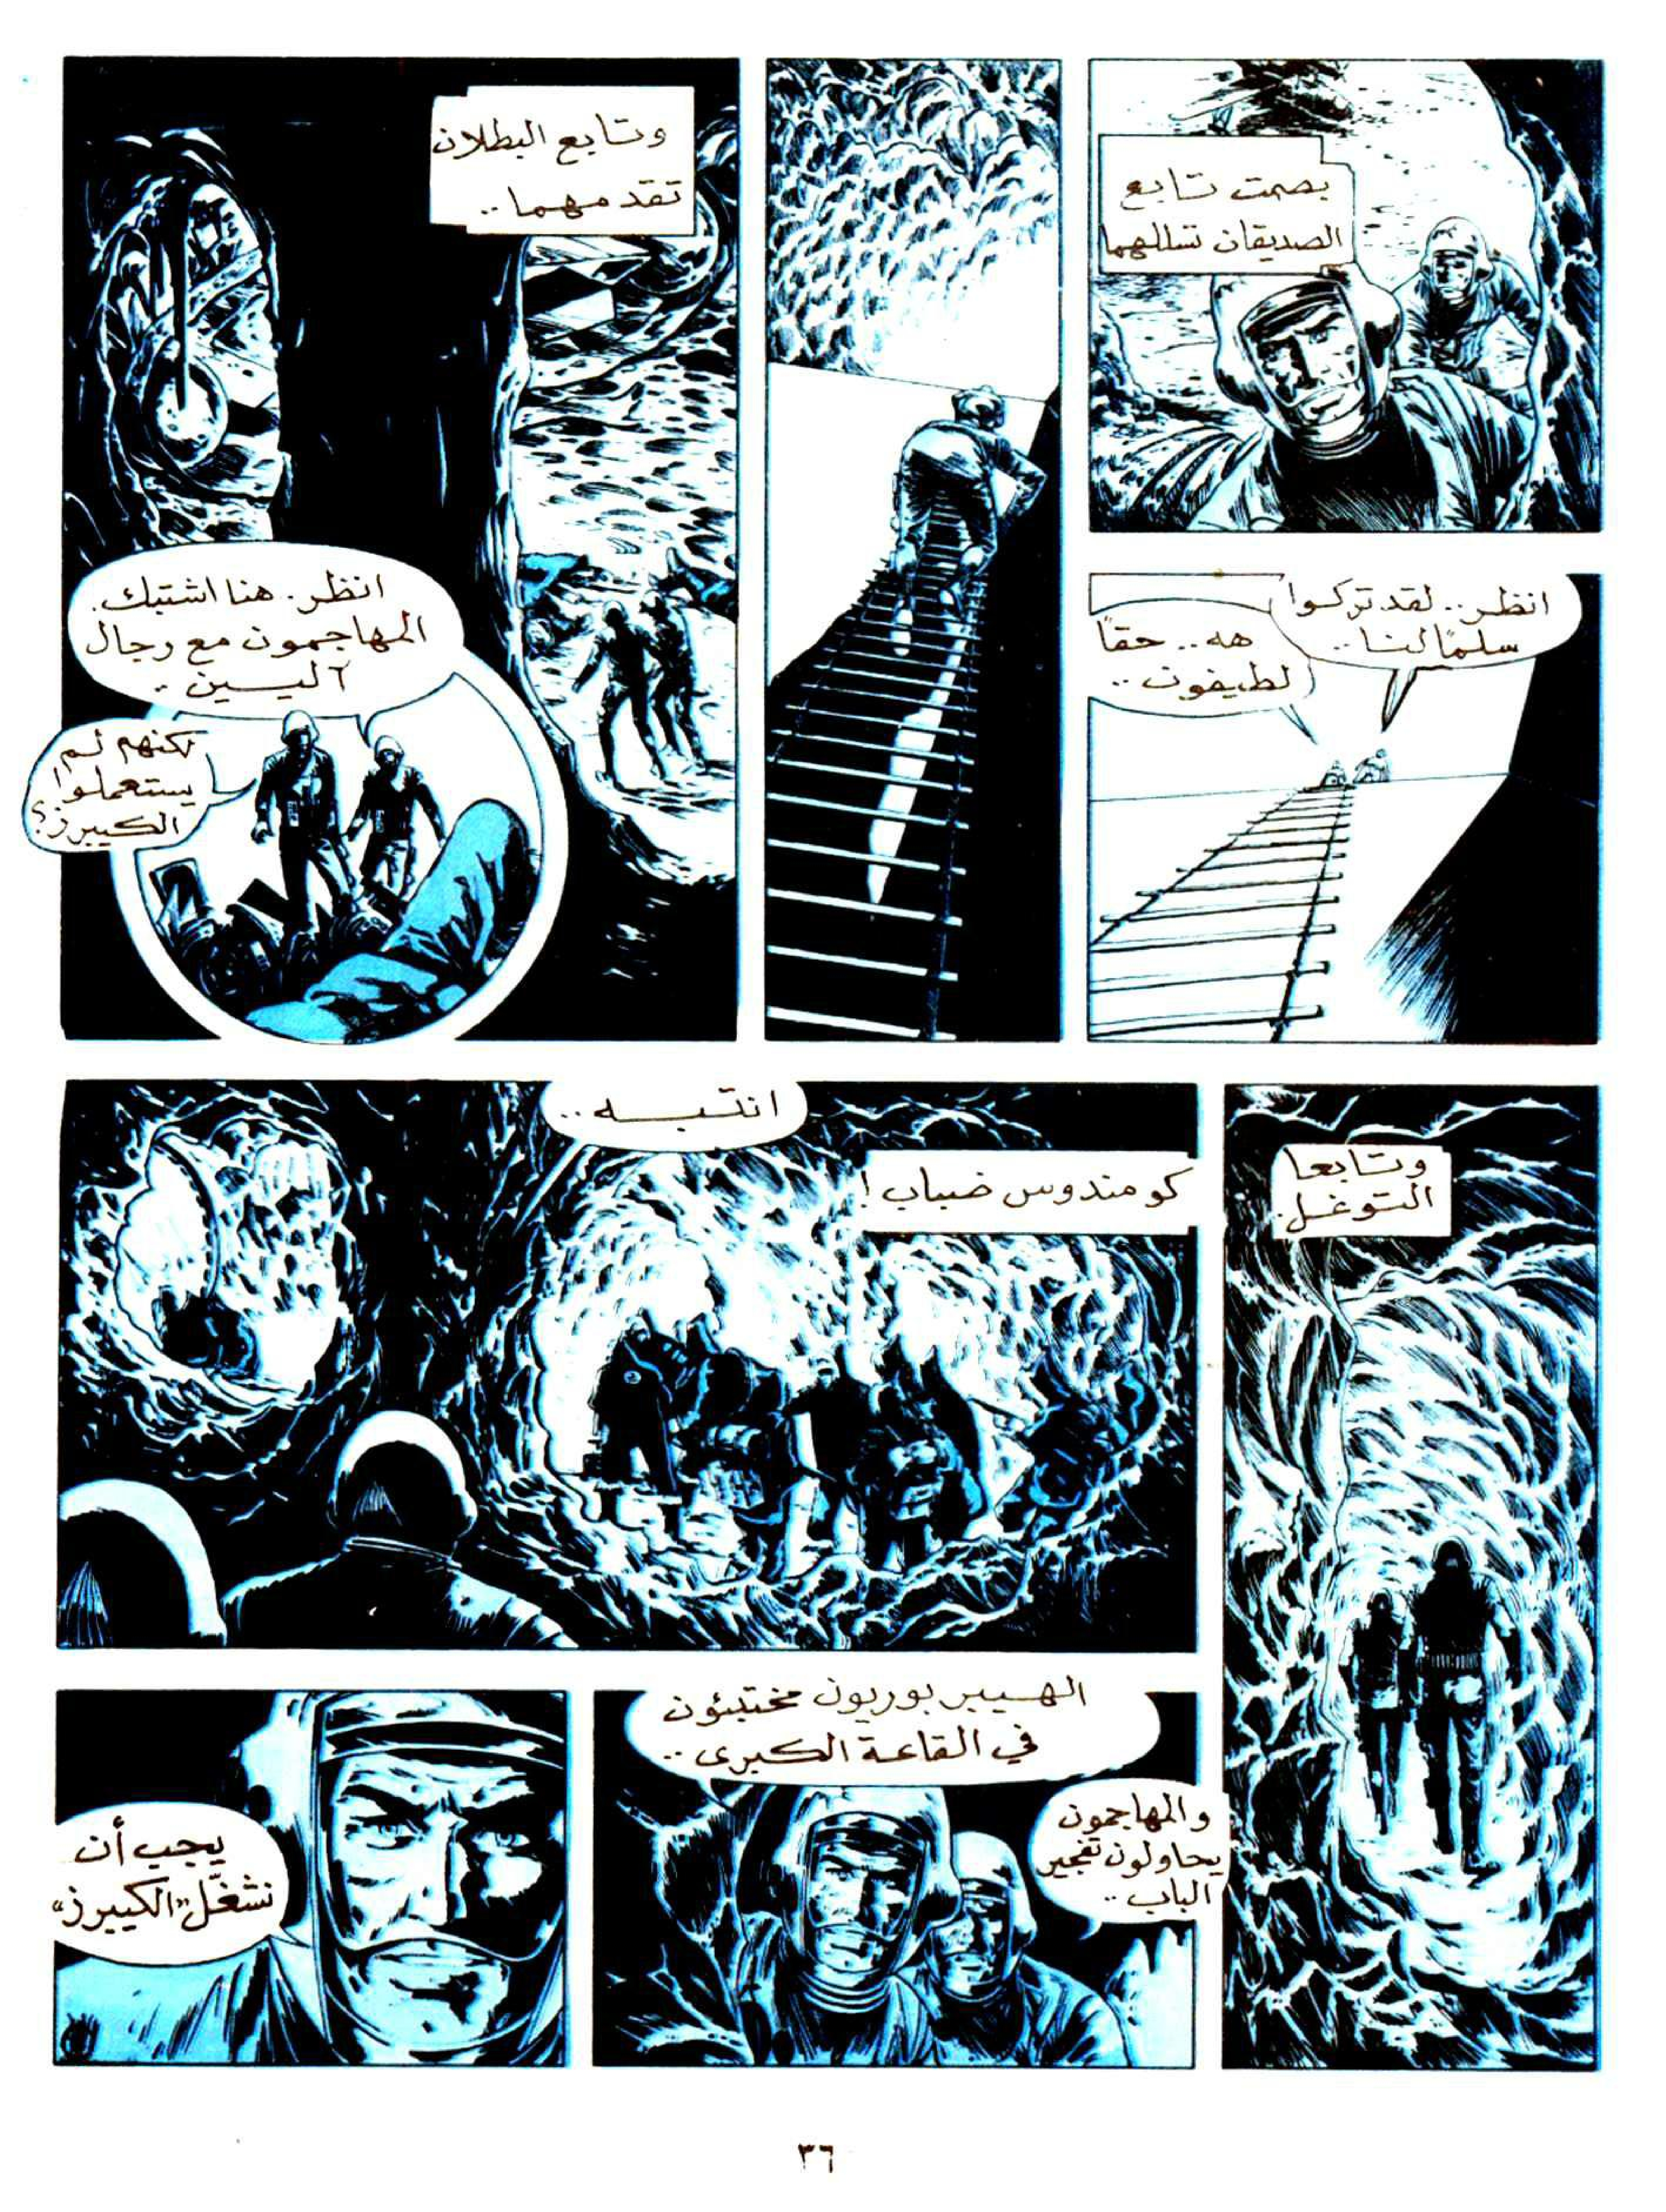 بصمت تابع
الصديقان تسللهما
انظر.. لقد تركوا
سلمًا لنا..
هه.. حقاً
لطيفون..
وتابع البطلان
تقدمهما..
انظر. هنا اشتبك.
المهاجمون مع رجال
آليين..
لكنهم لم
يستعملوا
الكييرز؟
وتابعا
التوغل.
انتبه..
كومندوس ضباب!
الهيبربوريون مختبئون
في القاعة الكبرى..
والمهاجمون
يحاولون تفجير
الباب..
يجب أن
نشغّل "الكييرز"
٣٦